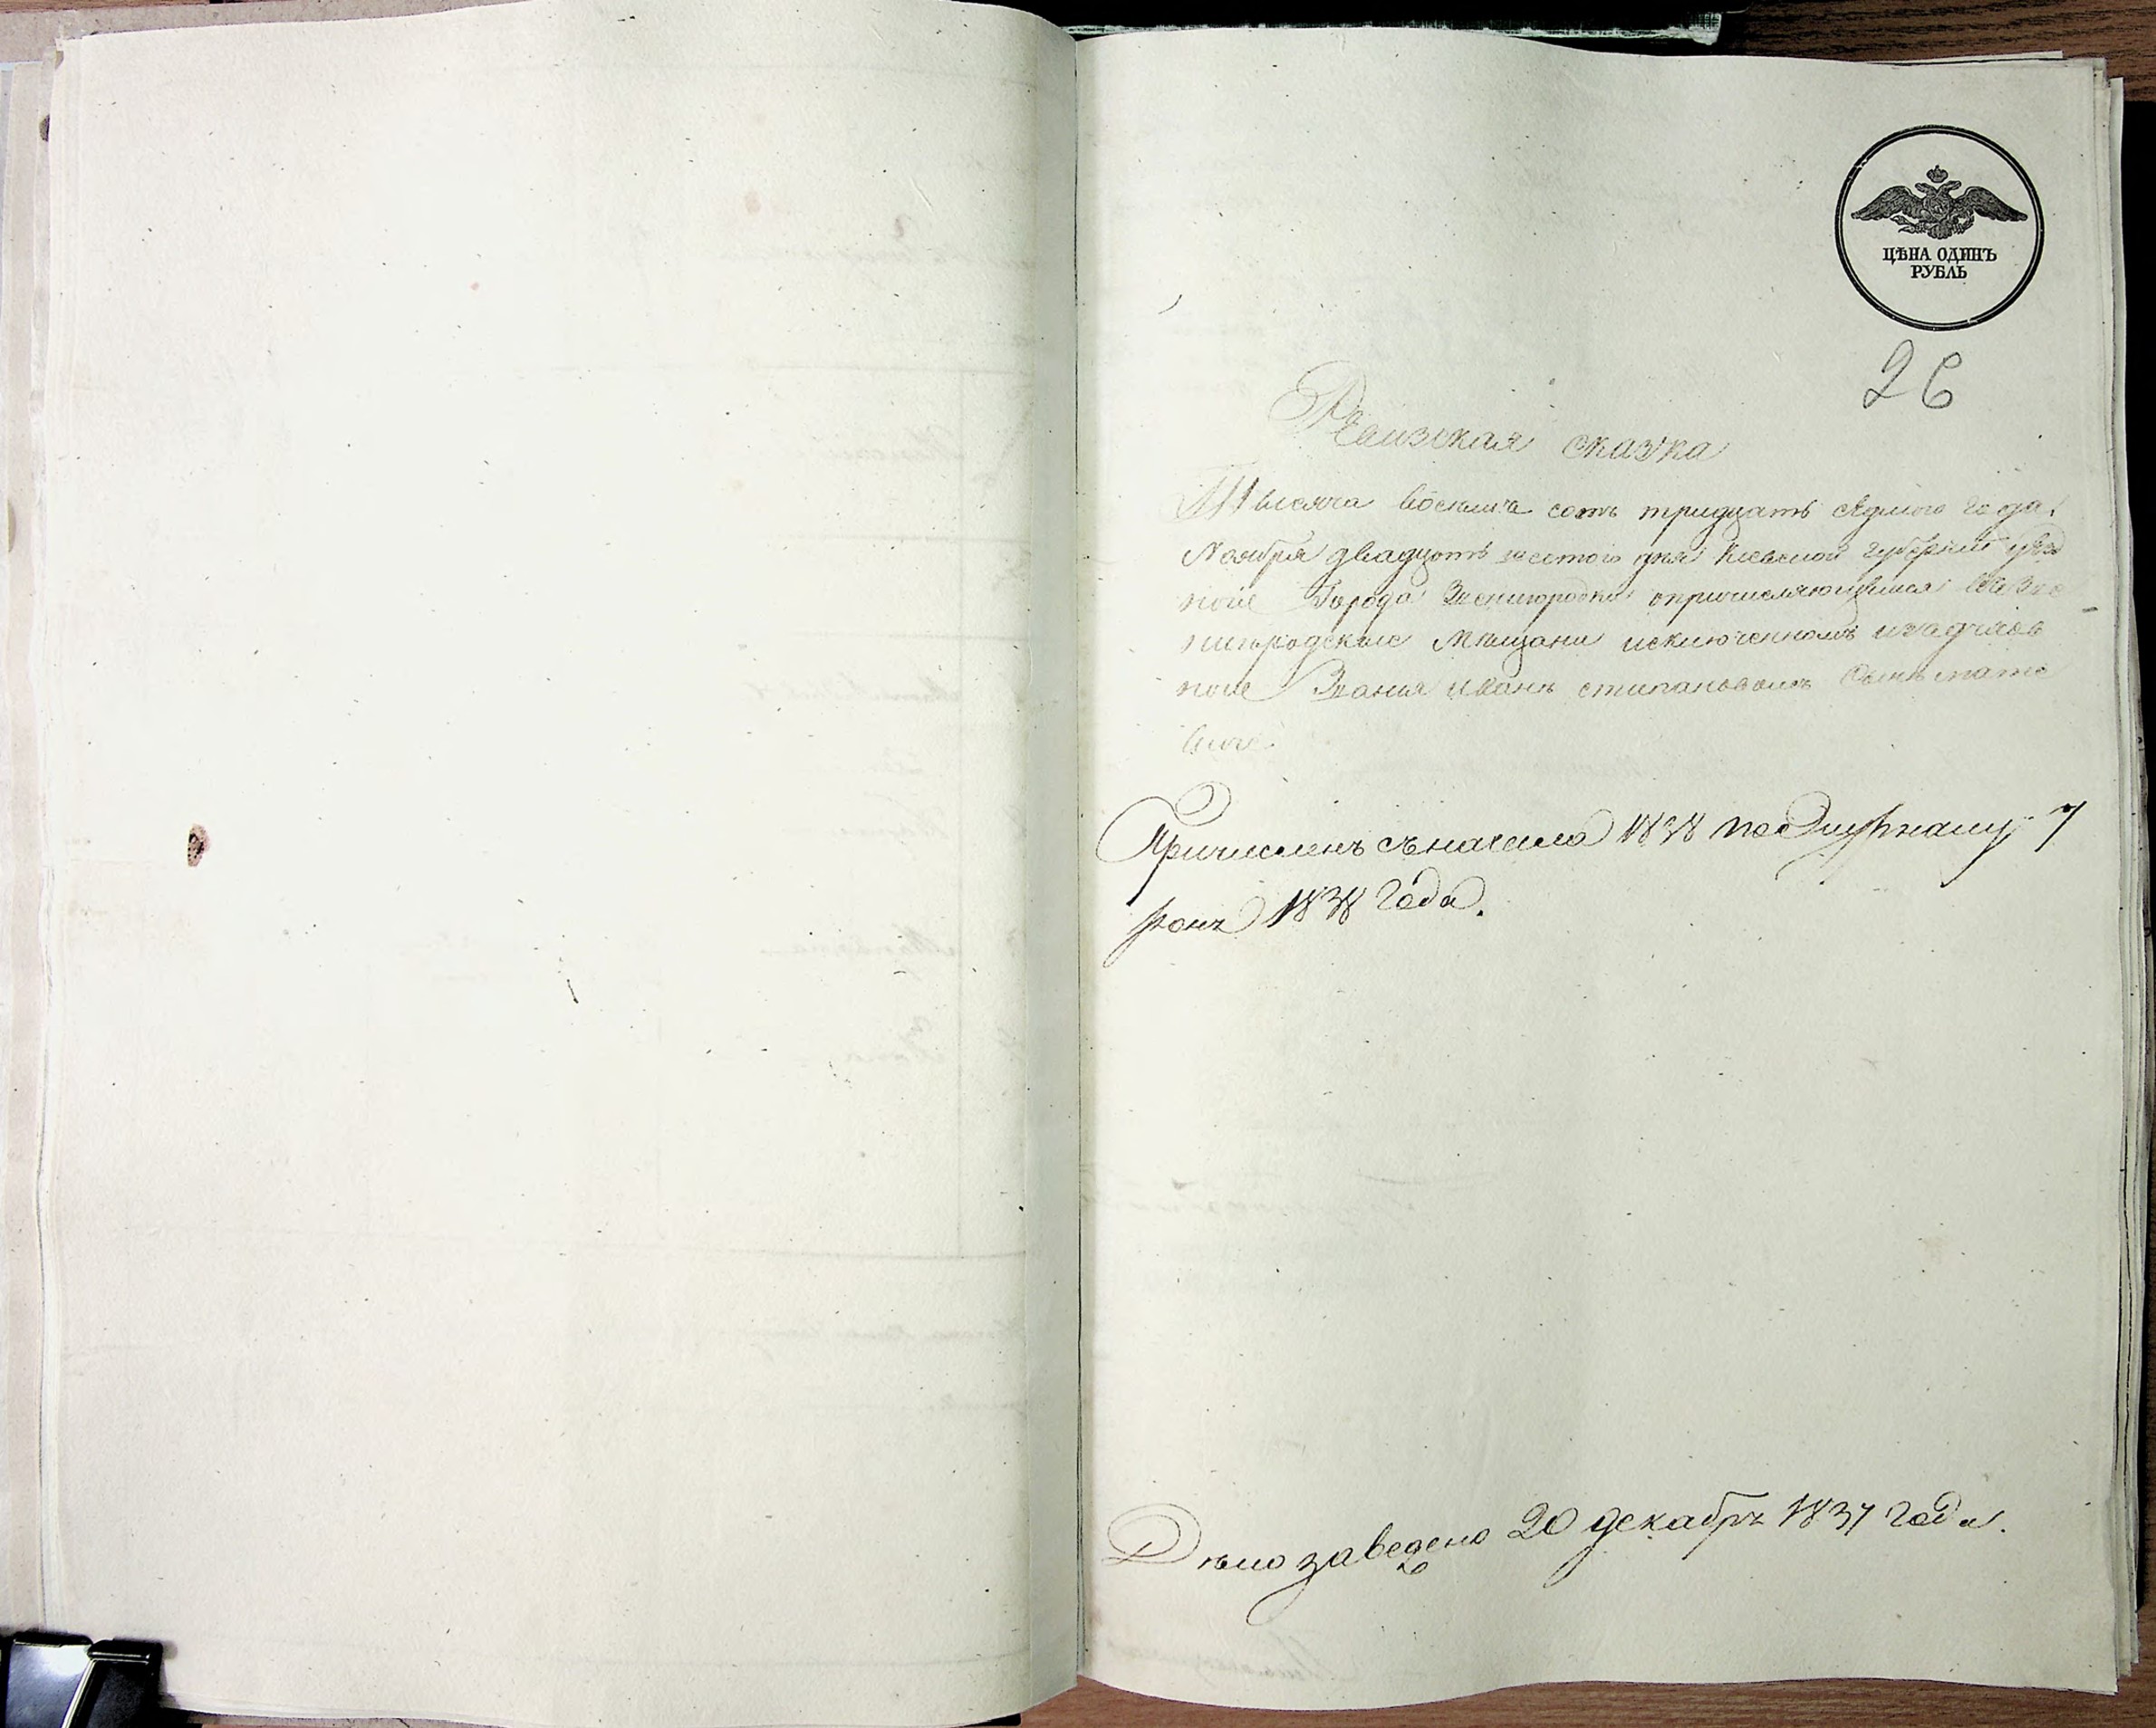 ЦѢНА ОДИНЪ
РУБЛЬ
26
Ревизская сказка
Тысяча восемъ сотъ тридцать седмого года,
Ноября двадцать шестого дня Киевской губернии уезд
ного Города Звенигородки опричисляющимся въ Звѣ
нигородские Мещани исключенномъ
ного Звания Иванъ стипановомъ Сынъ мате
Причисленъ съ начала 1838 по Журналу 7
1838 Года.
Дѣло заведено 20 декабрѣ 1837 Года.